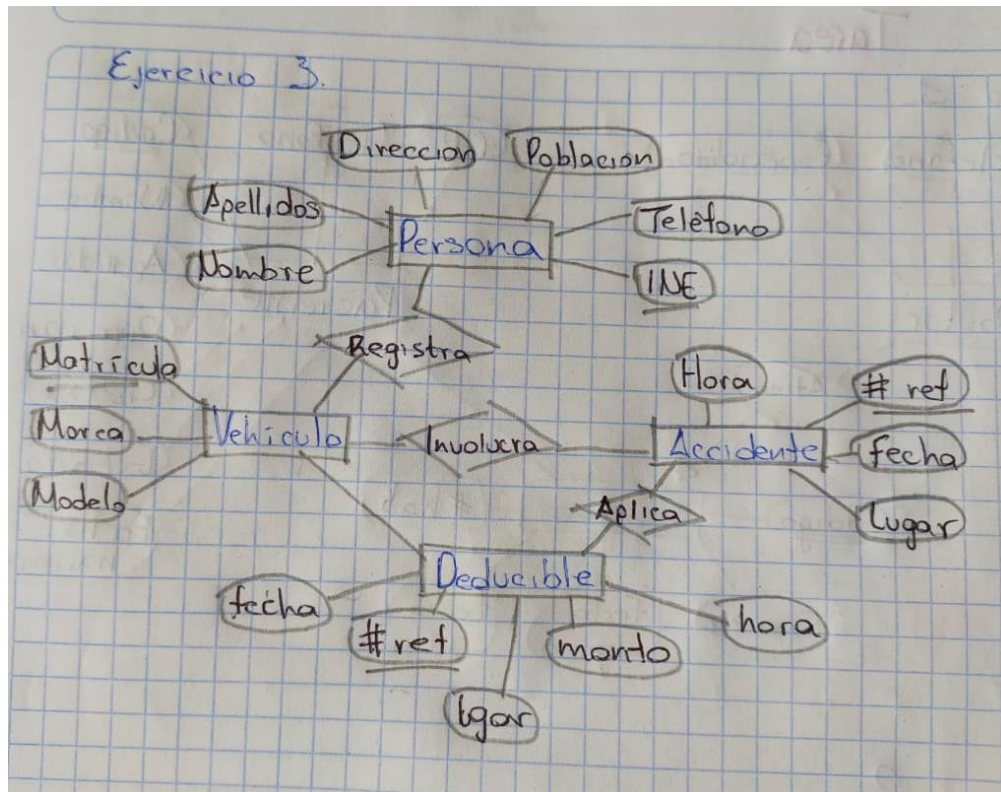 Ejercicio 3.
Dirección
Población
Apellidos
Teléfono
Persona
Nombre
INE
Registra
Matrícula
Hora
# ref
Marca
Vehículo
Involucra
Accidente
fecha
Modelo
Aplica
Lugar
Deducible
fecha
# ref
monto
hora
lgar